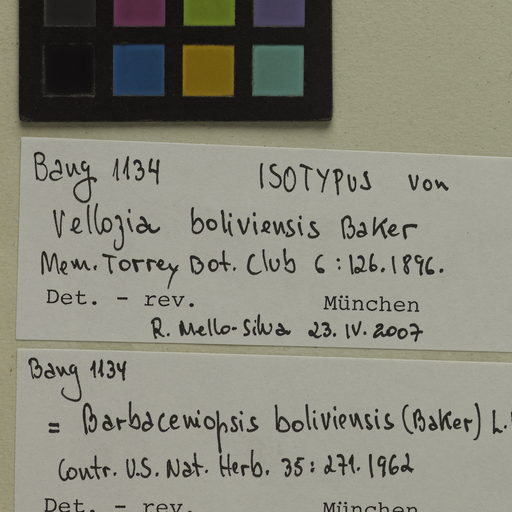 Bang 1134 ISOTYPUS von
Vellozia boliviensis Baker
Mem. Torrey Bot. Club 6 : 126. 1896.
Det. - rev. München
R. Mello-Silva 23. IV. 2007
Bang 1134
= Barbaceniopsis boliviensis (Baker) L.
Contr. U.S. Nat. Herb. 35 : 271. 1962
Det. - rev. München